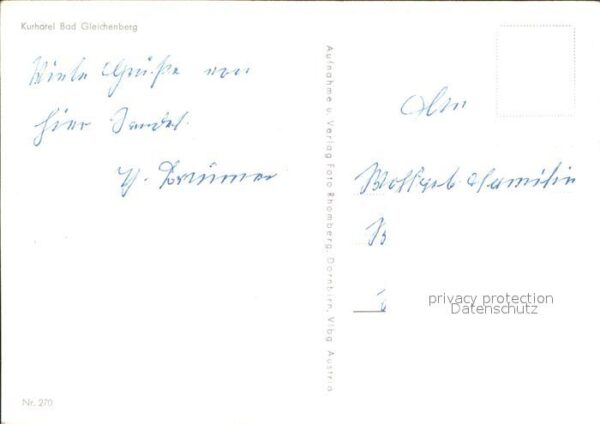 Kurhotel Bad Gleichenberg
Viele Grüße von
hier sendet
Aufnahme u. Verlag Foto Rhomberg, Dornbirn, Vlbg. Austria
An
Wohlgeb. Familie
B
privacy protection
Datenschutz
Nr. 270